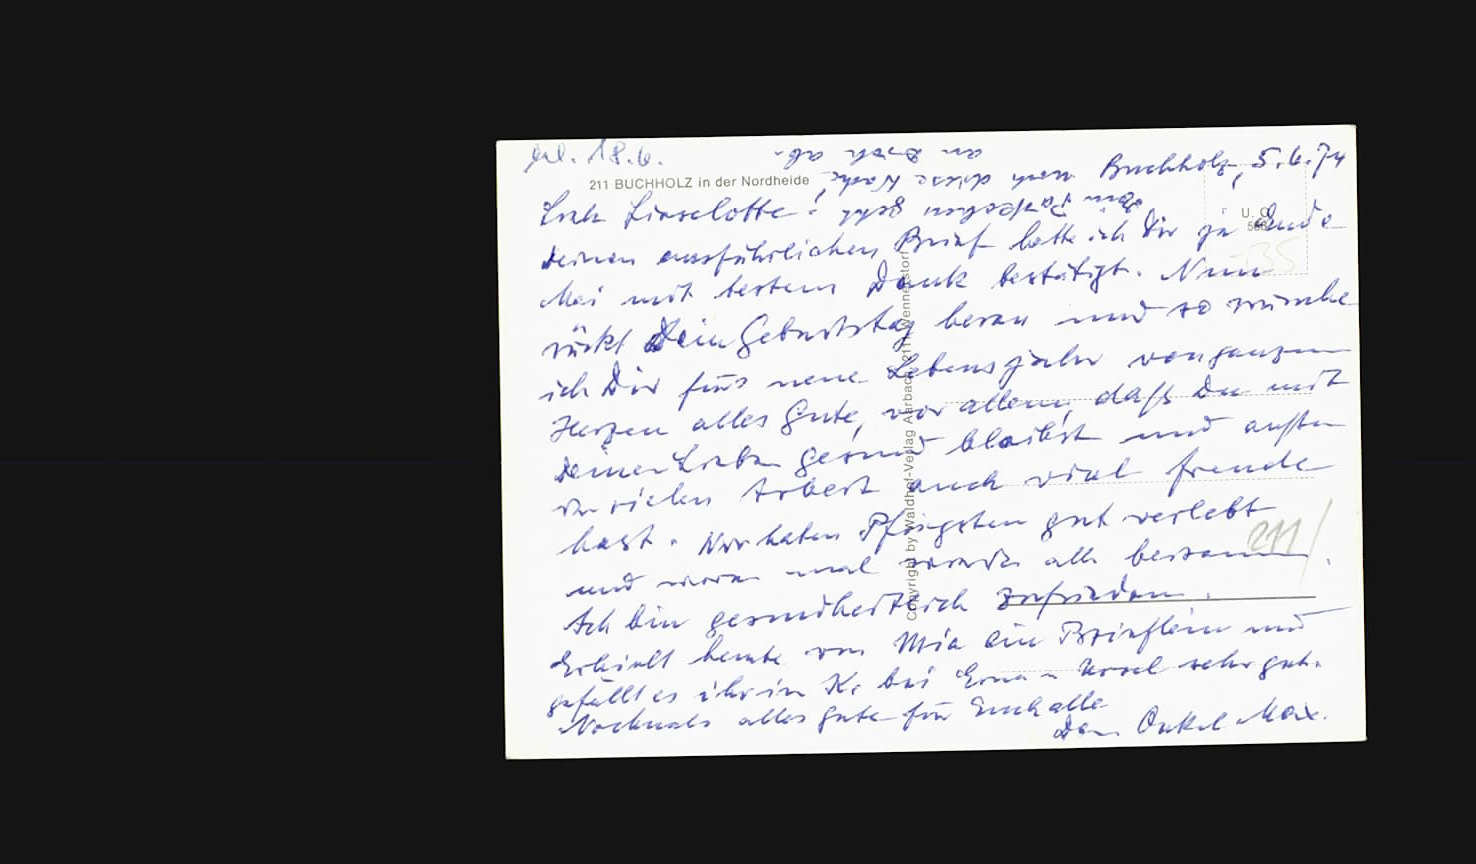 erl. 18.6.
211 BUCHHOLZ in der Nordheide
Buchholz, 5.6.74
Liebe Lieselotte!
Deinen ausführlichen Brief hatte ich Dir ja Ende
Mai mit bestem Dank bestätigt. Nun
rückt Dein Geburtstag heran und so wünsche
ich Dir fürs neue Lebensjahr von ganzem
Herzen alles Gute, vor allem, daß Du mit
Deinen Lieben gesund bleibst und außer
der vielen Arbeit auch viel Freude
hast. Wir haben Pfingsten gut verlebt
und waren mal wieder alle beisammen.
Ich bin gesundheitlich zufrieden.
Erhielt heute von Mia ein Brieflein und
gefällt es ihr in Kr bei Erna u Ursel sehr gut.
Nochmals alles Gute für Euch alle
Dein Onkel Max.
Dein Päckchen geht
noch diese Woche
an Dich ab.
U. C.
Copyright by Waldhof-Verlag Aarbach, 2111 Wennerstorf
211/